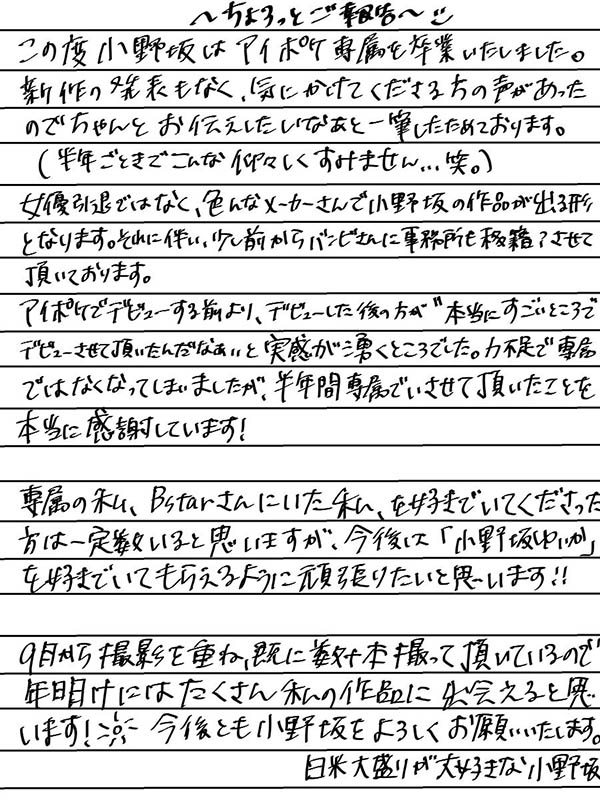 ～ちょろっとご報告～
この度小野坂はアイポケ専属を卒業いたしました。
新作の発表もなく、気にかけてくださる方の声があった
のでちゃんとお伝えしたいなあと一筆したためております。
(半年ごときでこんな仰々しくすみません…笑。)
女優引退ではなく、色んなメーカーさんで小野坂の作品が出る形
となります。それに伴い、少し前からバンビさんに事務所も移籍させて
頂いております。
アイポケでデビューする前より、デビューした後の方が"本当にすごいところで
デビューさせて頂いたんだなあ"と実感が湧くところでした。力不足で専属
ではなくなってしまいましたが、半年間専属でいさせて頂いたことを
本当に感謝しています!
専属の私、Bstarさんにいた私、を好きでいてくださった
方は一定数いると思いますが、今後は「小野坂ゆいか」
を好きでいてもらえるように頑張りたいと思います!!
9月から撮影を重ね、既に数十本撮って頂いているので
年明けにはたくさん私の作品に出会えると思
います! 今後とも小野坂をよろしくお願いいたします。
白米大盛りが大好きな小野坂